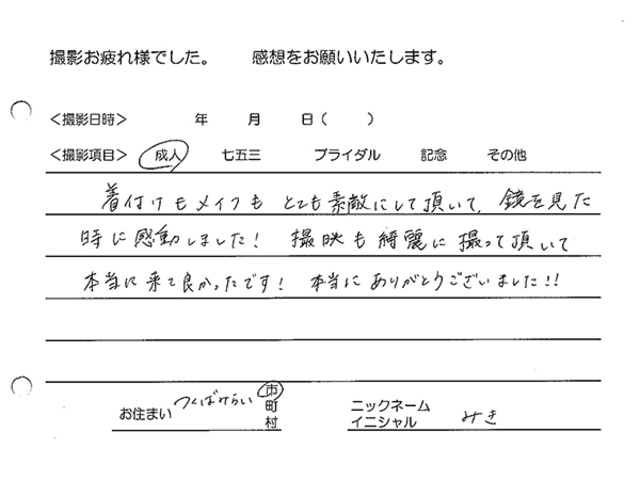 撮影お疲れ様でした。　　感想をお願いいたします。
＜撮影日時＞　　年　　月　　日（　　）
＜撮影項目＞　成人　　七五三　　ブライダル　　記念　　その他
着付けもメイクも とても素敵にして頂いて、鏡を見た
時に感動しました! 撮映も綺麗に撮って頂いて
本当に来て良かったです! 本当にありがとうございました!!
お住まい つくばみらい 市 町 村
ニックネーム イニシャル みき